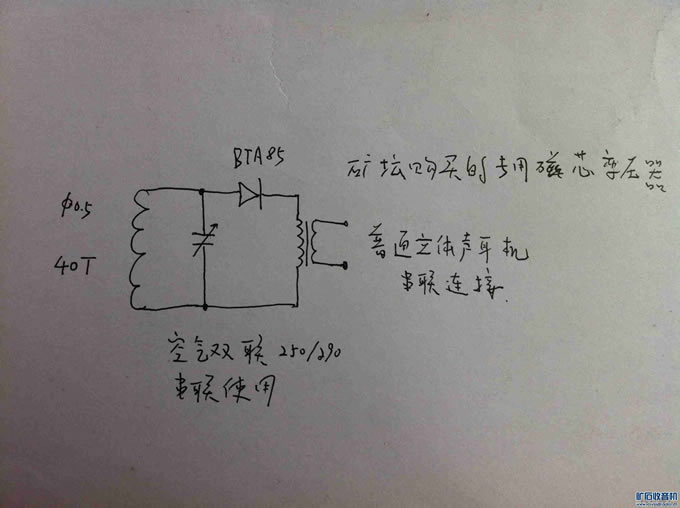 BTA85
矿坛购买的专用磁芯变压器
φ0.5
40T
普通立体声耳机
串联连接
空气双联250/290
串联使用
矿石收音机